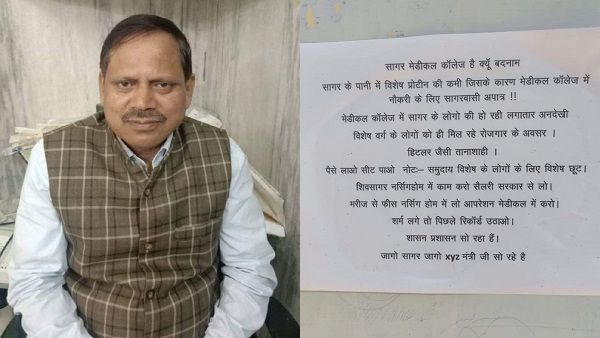 सागर मेडीकल कॉलेज है क्यूँ बदनाम
सागर के पानी में विशेष प्रोटीन की कमी जिसके कारण मेडीकल कॉलेज में
नौकरी के लिए सागरवासी अपात्र !!
मेडीकल कॉलेज में सागर के लोगो की हो रही लगातार अनदेखी
विशेष वर्ग के लोगों को ही मिल रहे रोजगार के अवसर ।
हिटलर जैसी तानाशाही ।
पैसे लाओ सीट पाओ नोटः– समुदाय विशेष के लोगों के लिए विशेष छूट।
शिवसागर नर्सिगहोम में काम करो सैलरी सरकार से लो।
मरीज से फीस नर्सिग होम में लो आपरेशन मेडीकल में करो।
शर्म लगे तो पिछले रिकॉर्ड उठाओ।
शासन प्रशासन सो रहा हैं।
जागो सागर जागो xyz मंत्री जी सो रहे है